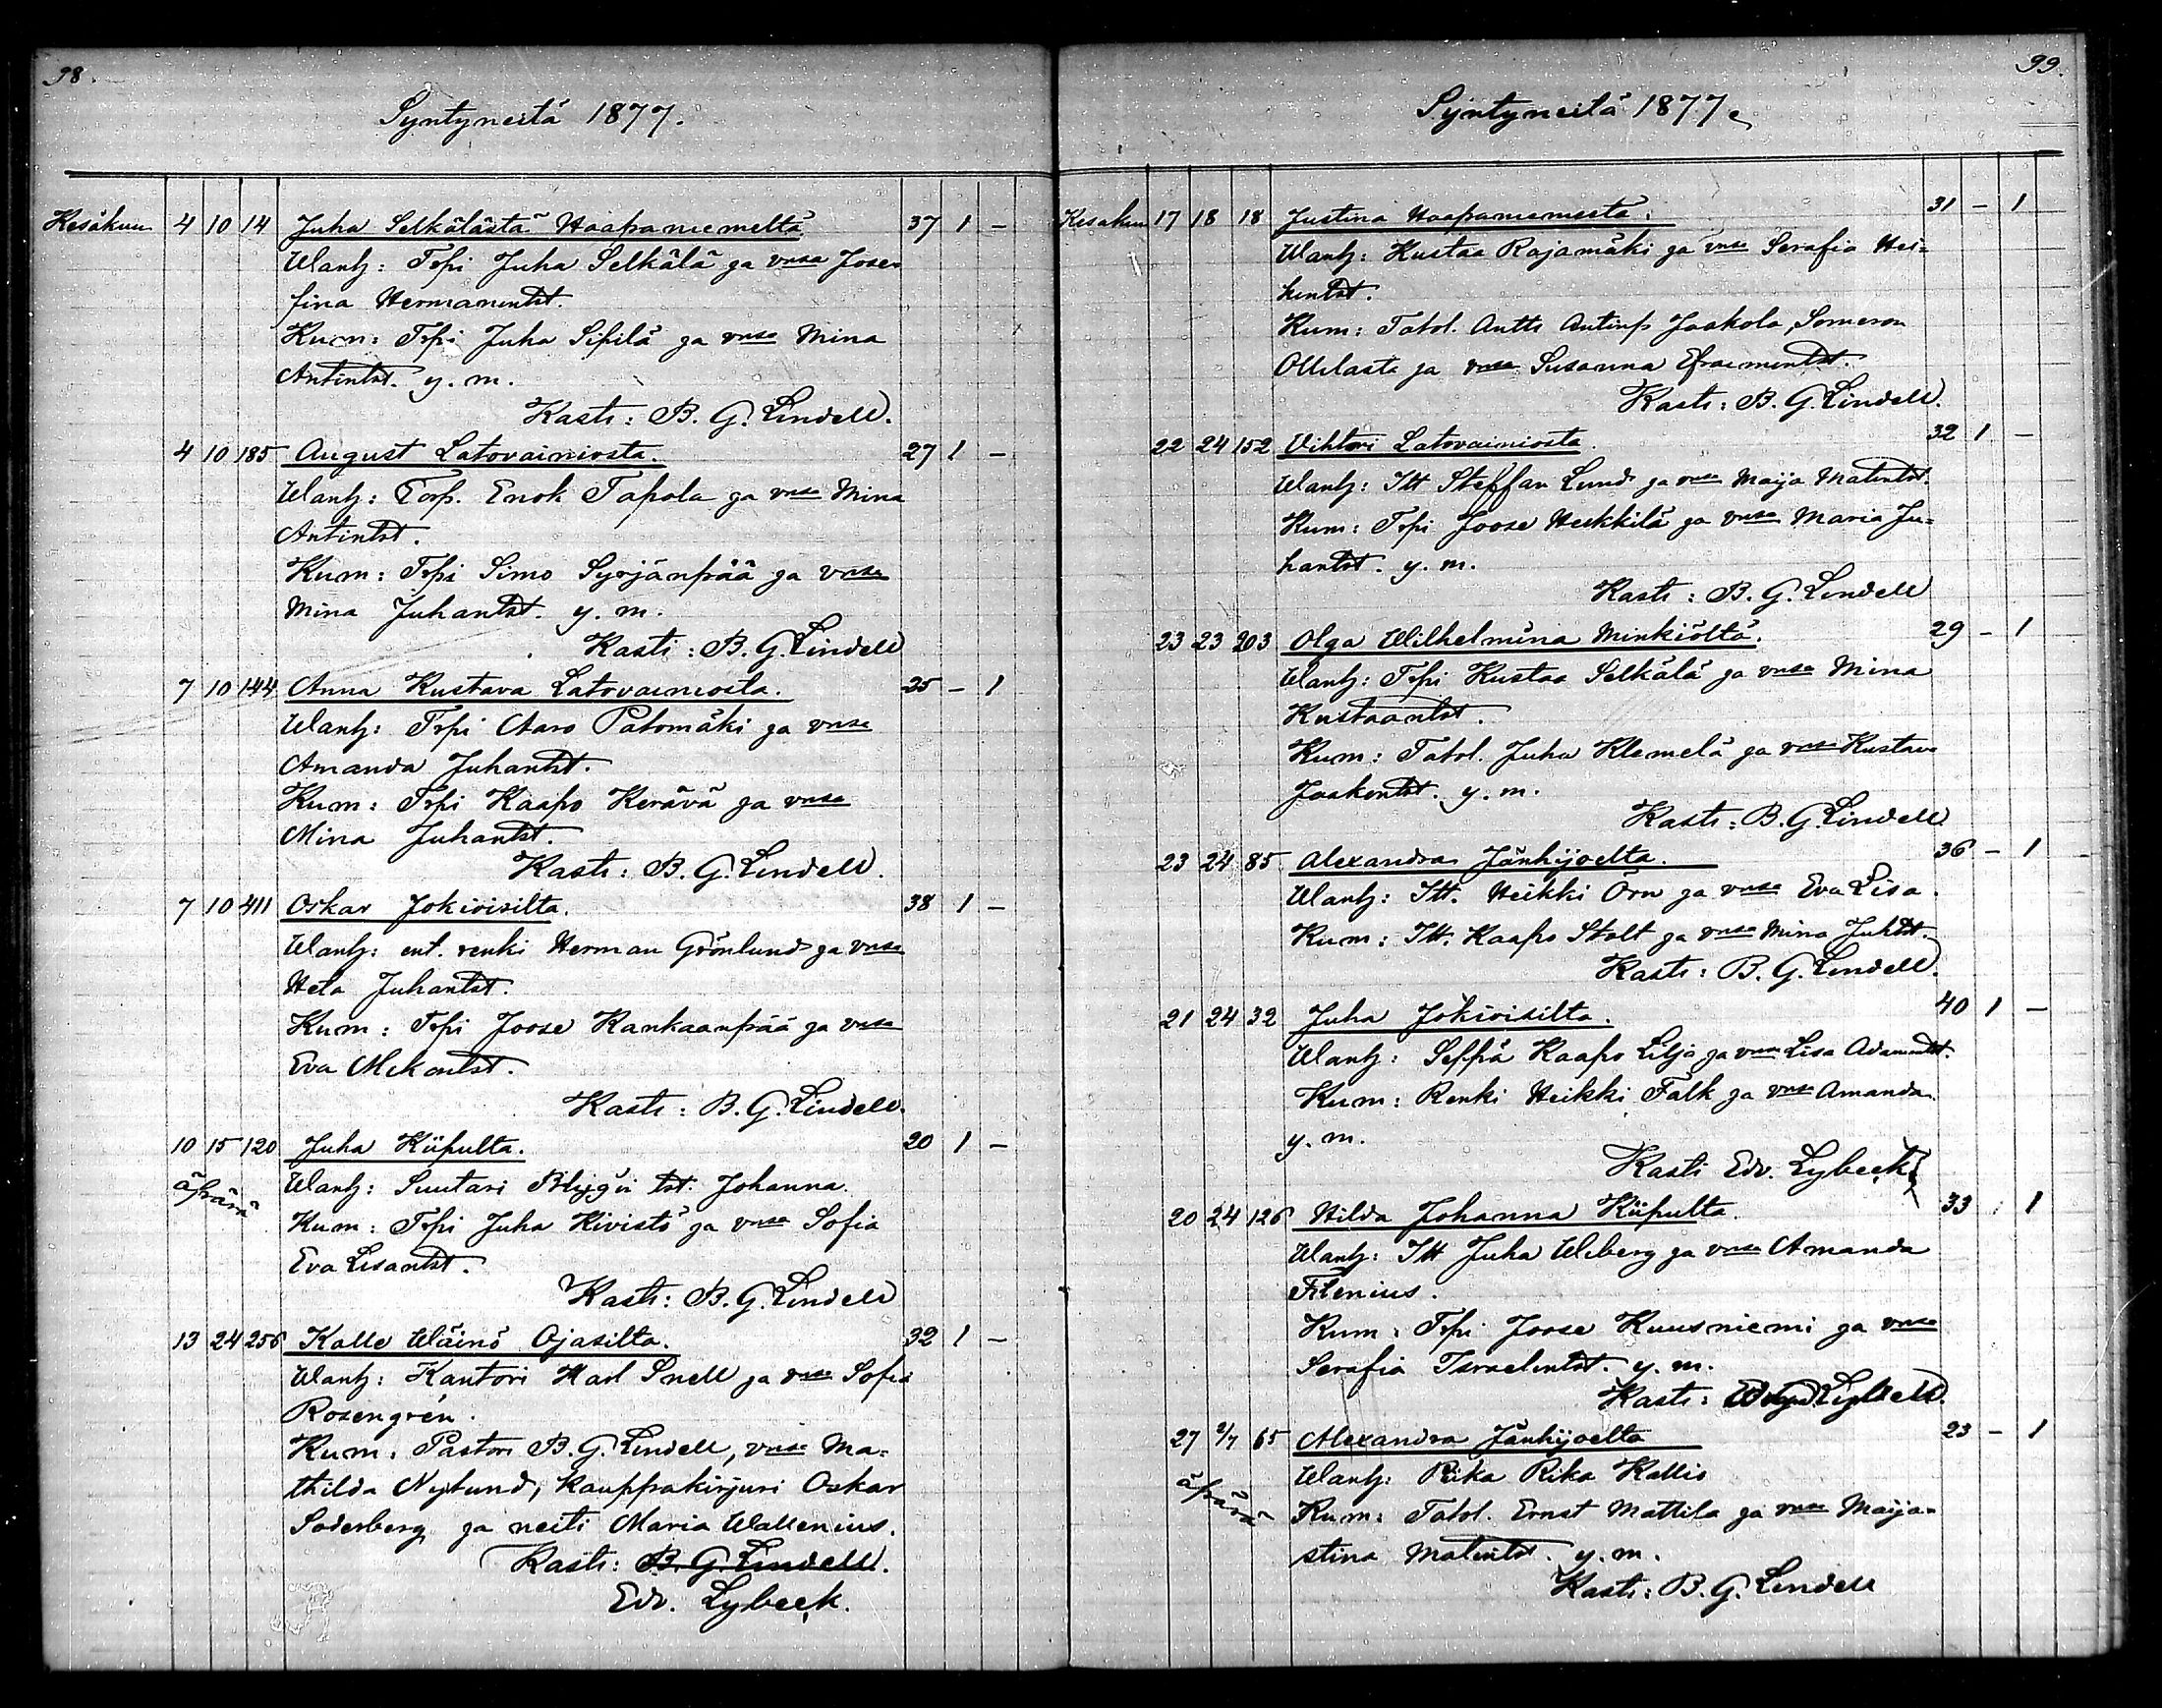 98.
Syntyneitä 1877.
Kesäkuu 4 10 14 Juha Selkälästä Haapaniemeltä 37 1 –
Wanh: Trpi Juha Selkälä ja vmsa Jose-
fina Hermanintst.
Kum: Trpi Juha Sipilä ja vmsa Mina
Antintst. y. m.
Kasti: B. G. Lindell.
4 10 185 August Latovainiosta. 27 1 –
Wanh: Torp. Enok Tapola ja vmsa Mina
Antintst.
Kum: Trpi Simo Syrjänpää ja vmsa
Mina Juhantst. y. m.
Kasti: B. G. Lindell
7 10 144 Anna Kustava Latovainiosta. 25 – 1
Wanh: Trpi Aaro Patomäki ja vmsa
Amanda Juhantst.
Kum: Trpi Kaapo Kerävä ja vmsa
Mina Juhantst.
Kasti: B. G. Lindell.
7 10 411 Oskar Jokioisilta. 38 1 –
Wanh: ent. renki Herman Grönlund ja vmsa
Heta Juhantst.
Kum: Trpi Joose Kankaanpää ja vmsa
Eva
Kasti: B. G. Lindell.
10 15 120 Juha Kiipulta. 20 1 –
äpärä Wanh: Suutari tst. Johanna.
Kum: Trpi Juha Kivistö ja vmsa Sofia
Eva Lisantst.
Kasti: B. G. Lindell
13 24 256 Kalle Wäinö Ojasilta. 32 1 –
Wanh: Kantori Karl Snell ja vmsa Sofia
Rosengrén.
Kum: Pastori B. G. Lindell, vmsa Ma-
thilda Nylund, kauppakirjuri Oskar
Soderberg ja neiti Maria Wallenius.
Kasti: B. G. Lindell.
Edv. Lybeck.
99.
Syntyneitä 1877.
Kesakuu 17 18 18 Justina Haapaniemestä. 31 – 1
Wanh: Kustaa Rajamäki ja vmsa Serafia Hei-
kintst.
Kum: Tatol. Antti Antinp Jaakola, Someron
Ollilasta ja vmsa Susanna Efraimintst.
Kasti: B. G. Lindell.
22 24 152 Vihtori Latovainiosta. 32 1 –
Wanh: Itt Steffan Lund ja vmsa Maija Matintst.
Kum: Trpi Joose Heikkilä ja vmsa Maria Ju-
hantst. y. m.
Kasti: B. G. Lindell
23 23 203 Olga Wilhelmina Minkiöltä. 29 – 1
Wanh: Trpi Kustaa Selkälä ja vmsa Mina
Kustaantst.
Kum: Tatol. Juha Klemelä ja vmsa Kustava
Jaakontst. y. m.
Kasti: B. G. Lindell
23 24 85 Alexandra Jänhijoelta. 36 – 1
Wanh: Itt. Heikki Örn ja vmsa Eva Lisa.
Kum: Itt. Kaapo Stolt ja vmsa Mina Juhtst.
Kasti: B. G. Lindell.
21 24 32 Juha Jokioisilta. 40 1 –
Wanh: Seppä Kaapo Lilja ja vmsa Lisa Adamintst.
Kum: Renki Heikki Falk ja vmsa Amanda
y. m.
Kasti Edv. Lybeck
20 24 126 Hilda Johanna Kiipulta. 33 1
Wanh: Itt Juha Weberg ja vmsa Amanda
Filenius.
Kum: Trpi Joose Kuusniemi ja vmsa
Serafia Israelintst. y. m.
Kasti:
27 2/7 65 Alexandra Jänhijoelta 23 – 1
äpärä Wanh: Piika Rika Kallio
Kum: Tatol. Ernst Mattila ja vmsa Maija-
stina Matintst. y. m.
Kasti: B. G. Lindell